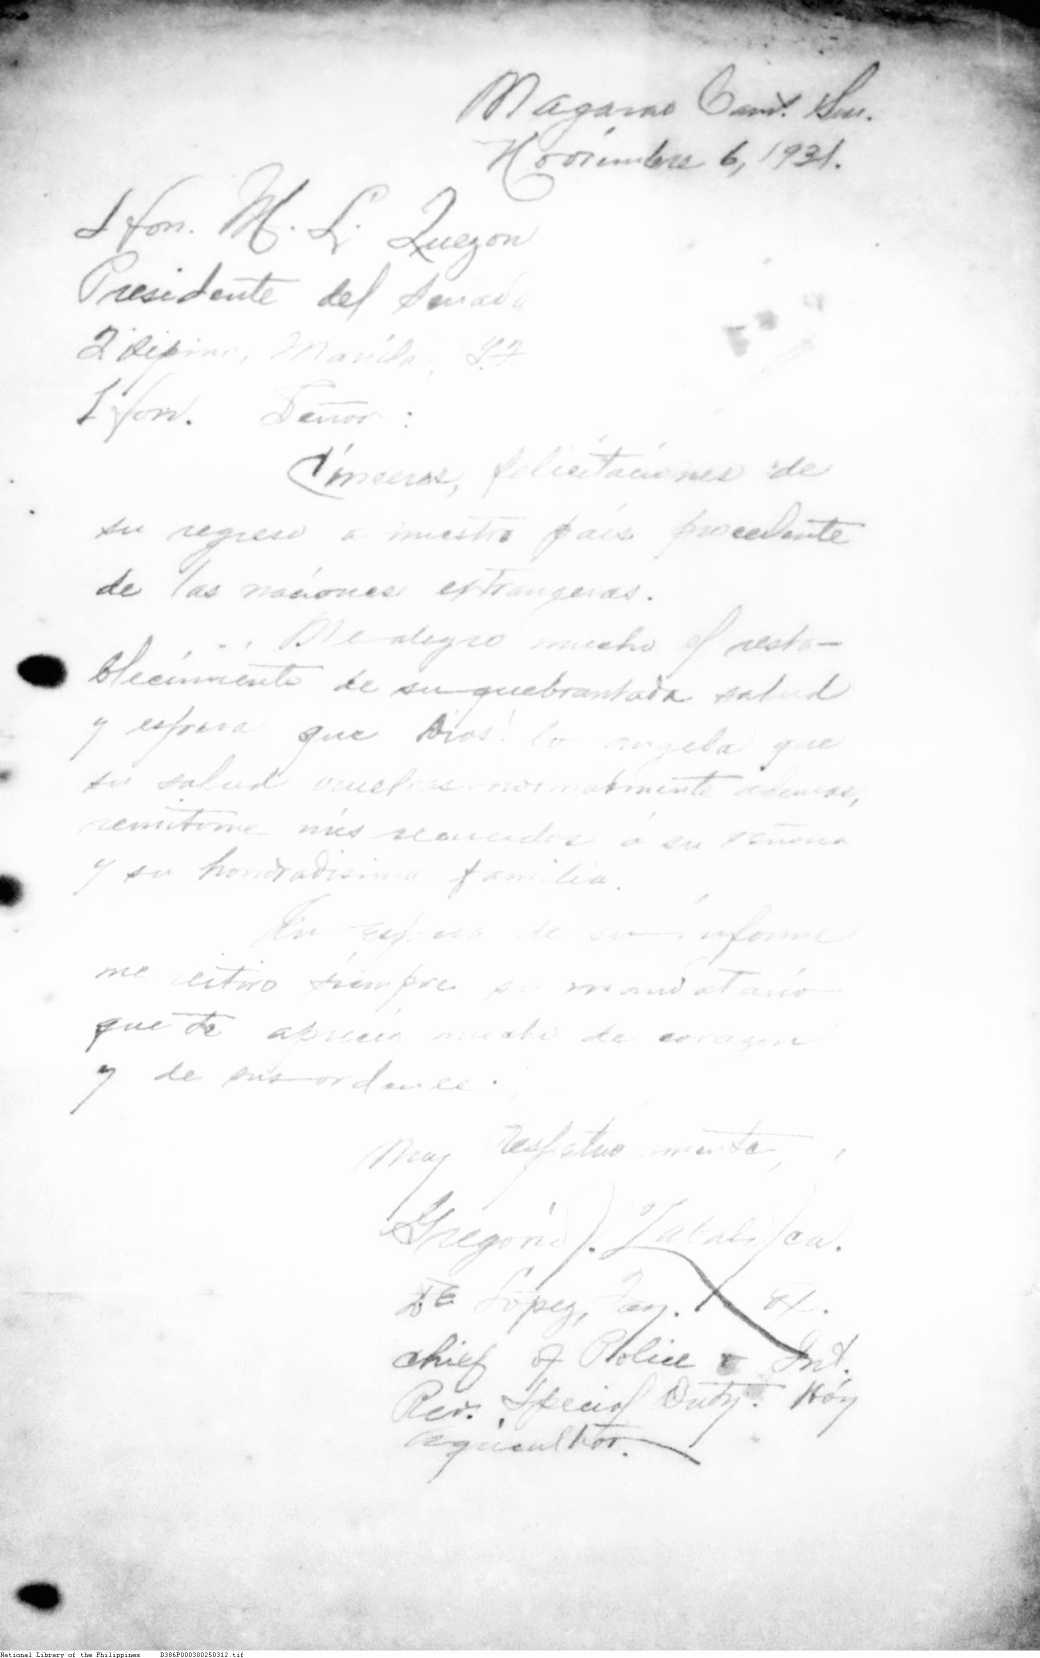 Magarao Cam. Sur.
Noviembre 6, 1931.
Hon. M. L. Quezon
Presidente del Senado
Filipino, Manila, I.F.
Hon. Señor:
Cinceras, felicitaciones de
su regreso a nuestro país procedente
de las naciones extrangeras.
Me alegro mucho el resta-
blecimiento de su quebrantada salud
y espera que Dios lo que
su salud normalmente ademas,
remitome mis recuerdos á su señora
y su honradisima familia.
En espera de su informe
me siempre su mandatario
que te aprecia mucho de corazon
y de sus ordenes.
Muy respetuosamente,
Gregorio
De López, Ex.
chief of Police & Int.
Rev. Special Duty. Hoy
agricultor.
National Library of the Philippines D386P000380250312.tif